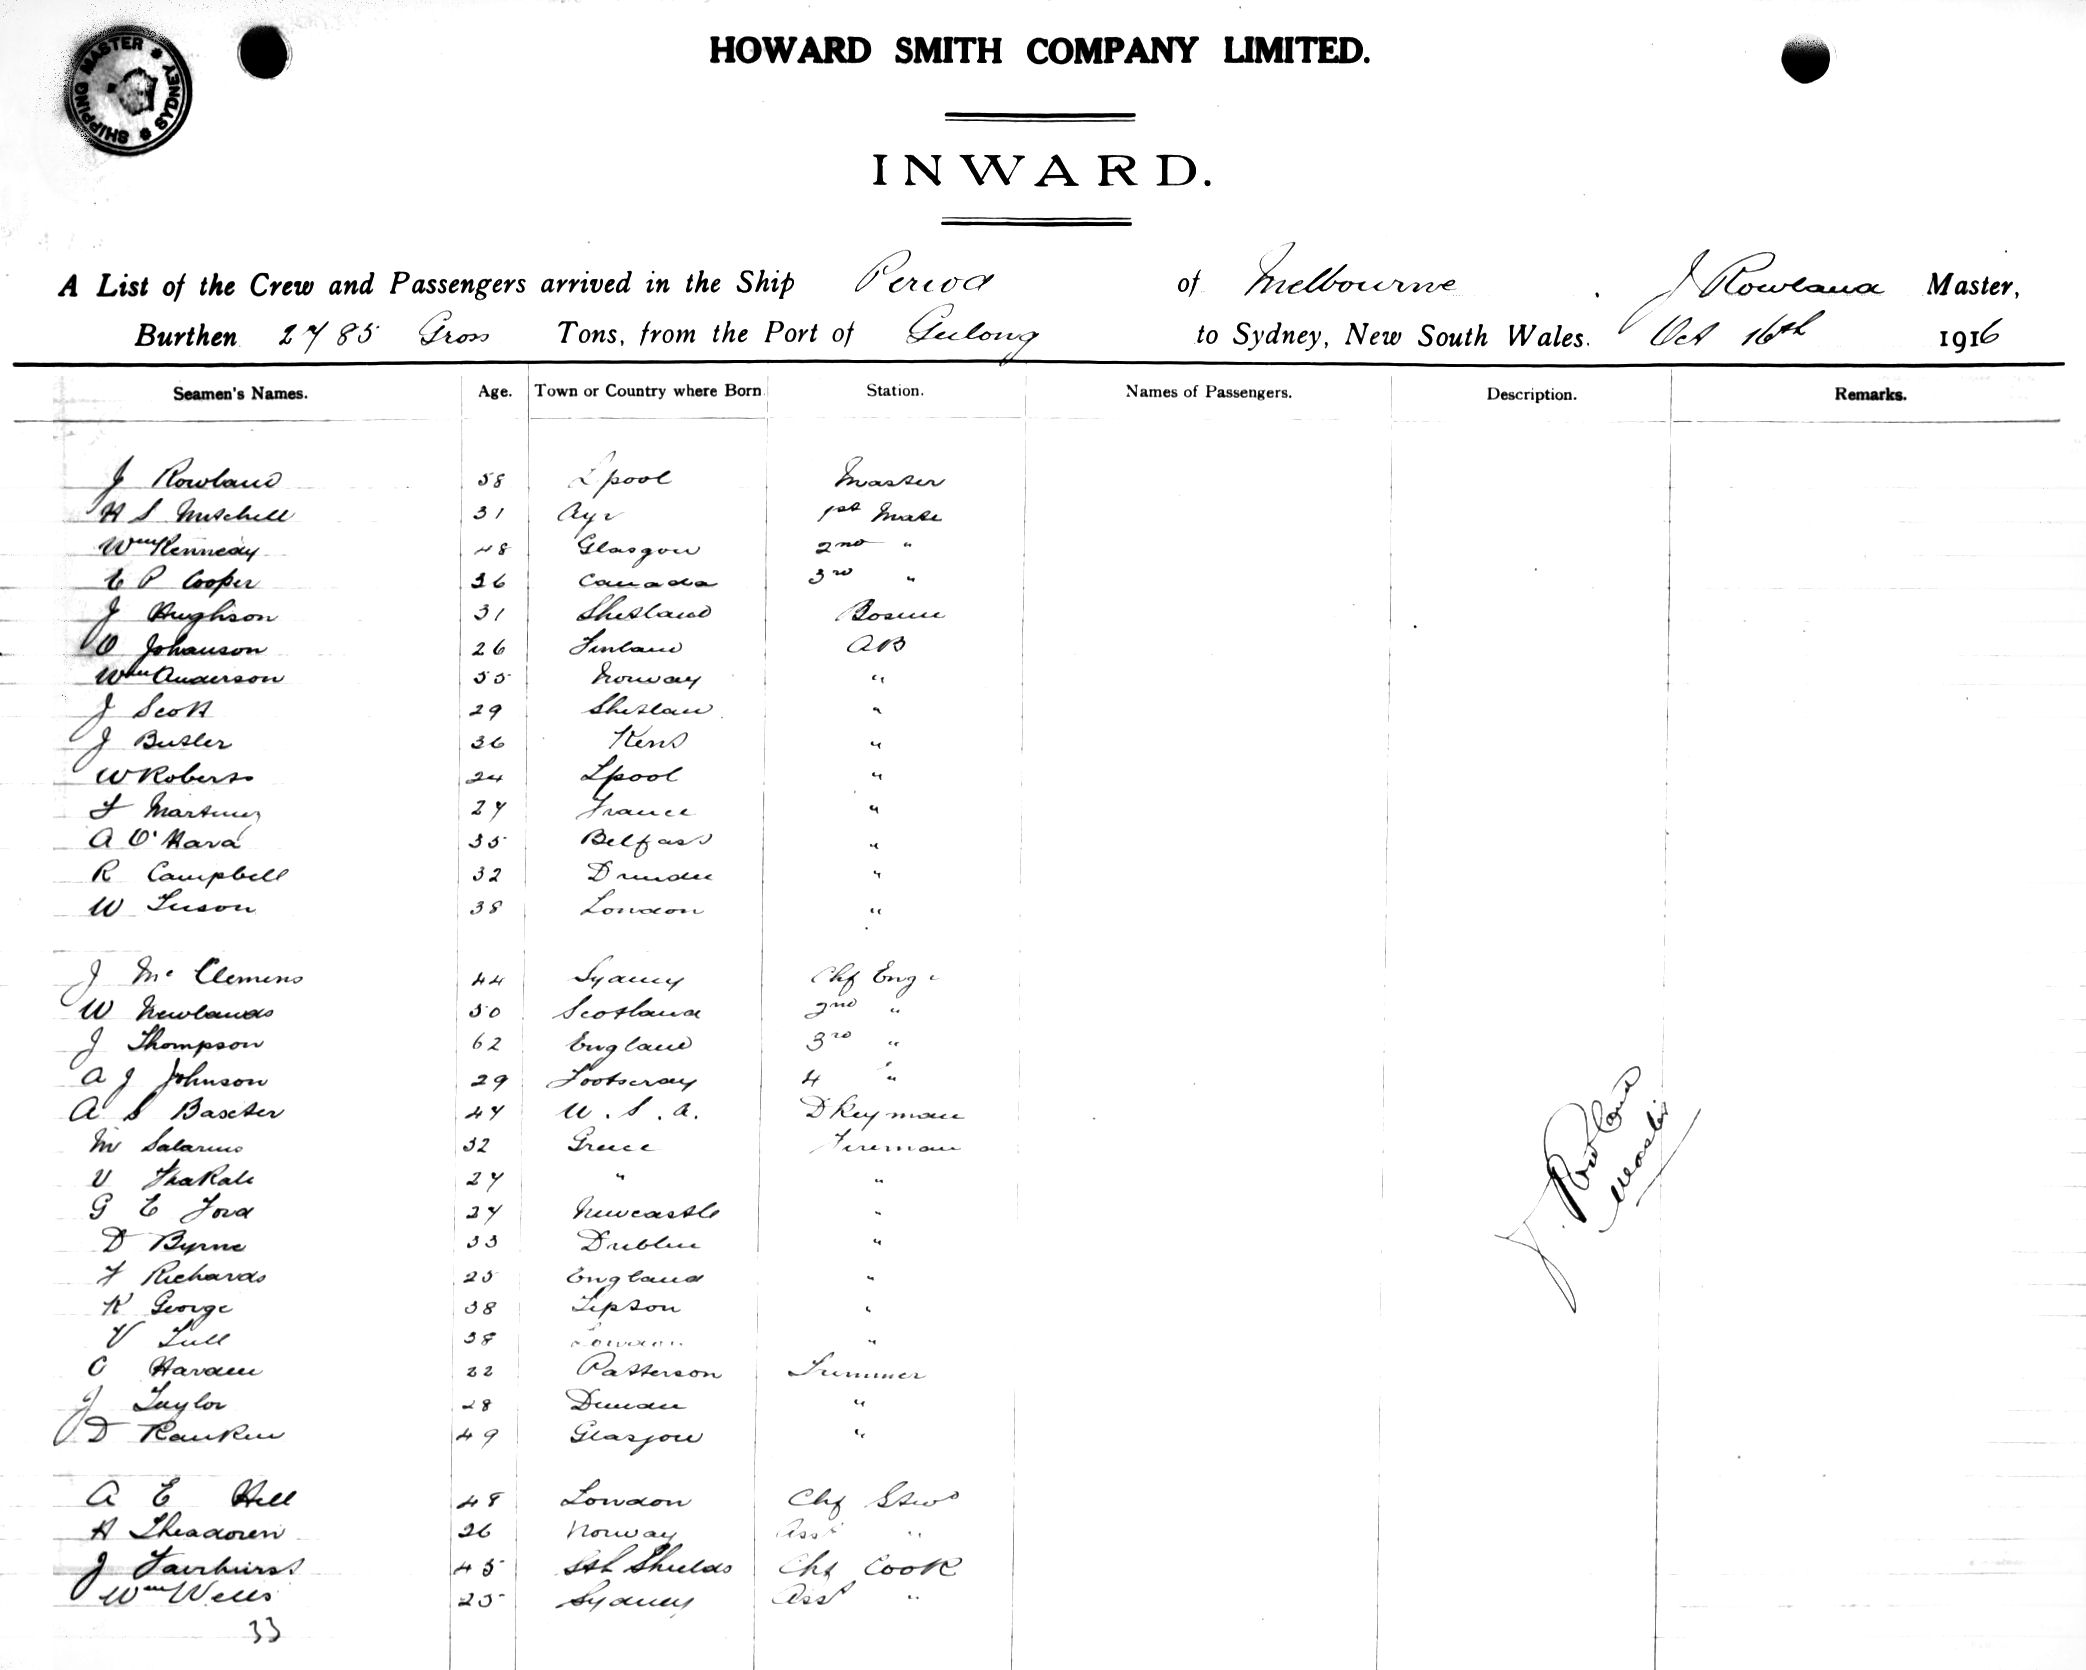 SHIPPING MASTER * SYDNEY *
HOWARD SMITH COMPANY LIMITED.
INWARD.
A List of the Crew and Passengers arrived in the Ship Period of Melbourne . J Rowland Master,
Burthen 2785 Gross Tons, from the Port of Geelong to Sydney, New South Wales. Oct 16th 1916
Seamen's Names. Age. Town or Country where Born Station. Names of Passengers. Description. Remarks.
J Rowland 58 Lpool Master
H S Mitchell 31 Ayr 1st Mate
Wm Kennedy 48 Glasgow 2nd "
E P Cooper 36 Canada 3rd "
J Hughson 31 Shetland Bosun
O Johanson 26 Finland AB
Wm Anderson 55 Norway "
J Scott 29 Shetlan "
J Butler 36 Kent "
W Roberts 24 Lpool "
F Martinez 27 France "
A O'Hara 35 Belfast "
R Campbell 32 Dundee "
W Tuson 38 London "
J Mc Clemens 44 Sydney Chf Engr
W Newlands 50 Scotland 2nd "
J Thompson 62 England 3rd "
A J Johnson 29 Footscray 4 "
A S Baxter 47 U.S.A. Dkeyman
M 32 Greece Fireman
V 27 " "
G E Ford 27 Newcastle "
D Byrne 33 Dublin "
F Richards 25 England "
K George 38 Tipton "
V Tull 38 London "
C Harden 22 Patterson Trimmer
J Taylor 28 Dundee "
D Rankin 49 Glasgow "
A E Hill 48 London Chf Stwd
H Theadoren 26 Norway Asst "
J Fairhurst 45 Sth Shields Chf Cook
Wm Wells 25 Sydney Asst "
33
J. Rowland
Master